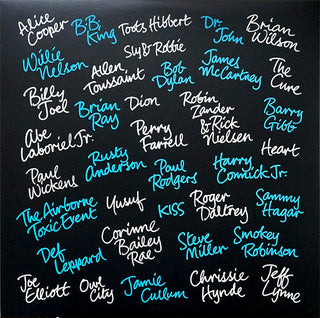 Alice Cooper
B.B. King
Toots Hibbert
Dr. John
Brian Wilson
Willie Nelson
Sly & Robbie
Allen Toussaint
Bob Dylan
James McCartney
The Cure
Billy Joel
Brian Ray
Dion
Robin Zander & Rick Nielsen
Barry Gibb
Abe Laboriel Jr.
Perry Farrell
Heart
Paul Wickens
Rusty Anderson
Paul Rodgers
Harry Connick Jr.
The Airborne Toxic Event
Yusuf
KISS
Roger Daltrey
Sammy Hagar
Def Leppard
Corinne Bailey Rae
Steve Miller
Smokey Robinson
Joe Elliott
Owl City
Jamie Cullum
Chrissie Hynde
Jeff Lynne